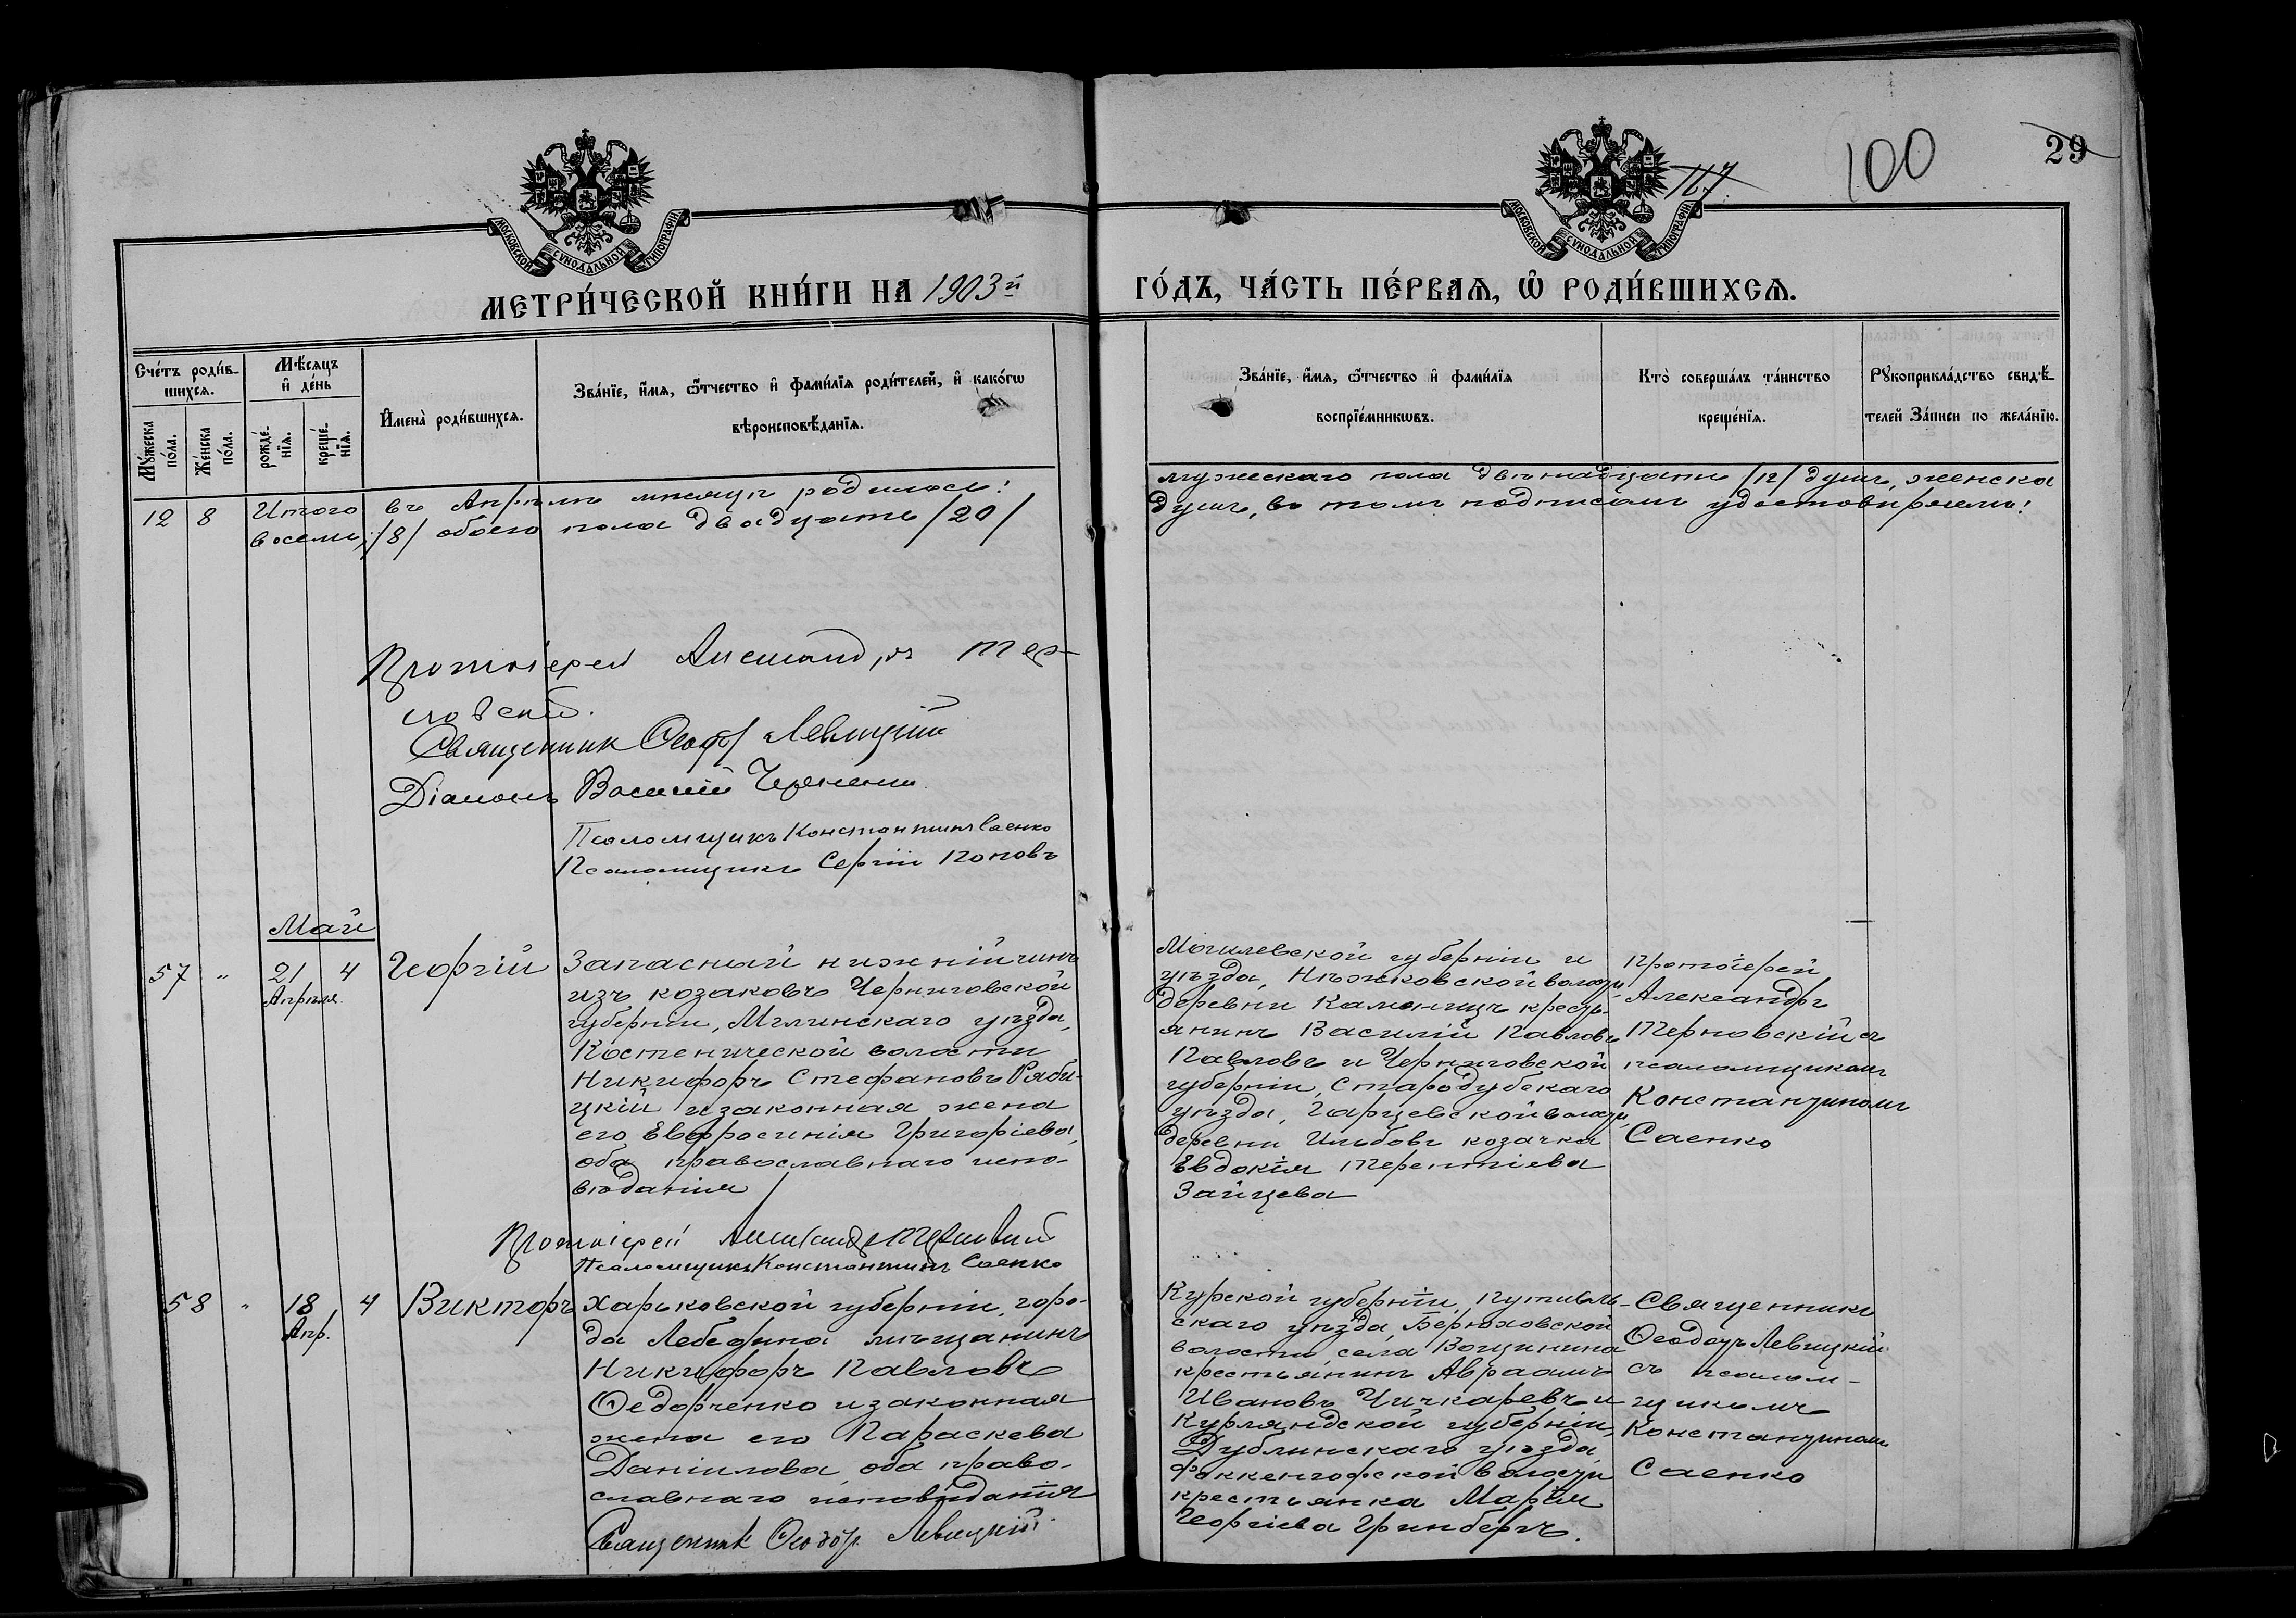 117
100
29
МОСКОВСКОЙ СУНОДАЛЬНОЙ ТИПОГРАФІИ
МОСКОВСКОЙ СУНОДАЛЬНОЙ ТИПОГРАФІИ
МЕТРИ́ЧЕСКОЙ КНИ́ГИ НА 1903й
ГО́ДЪ, ЧА́СТЬ ПЕ́РВАѦ, Ѡ҆ РОДИ́ВШИХСѦ.
Сче́тъ роди́в-
шихсѧ.
Мꙋ́жеска по́ла.
Же́нска по́ла.
Мѣ́сѧцъ и҆ де́нь
рожде́-нїѧ.
креще́-нїѧ.
И҆мена̀ роди́вшихсѧ.
Зва́нїе, и҆́мѧ, ѻ҆́тчество и҆ фами́лїѧ роди́телей, и҆ како́гѡ
вѣроисповѣ́данїѧ.
Зва́нїе, и҆́мѧ, ѻ҆́тчество и҆ фами́лїѧ
воспрїе́мникѡвъ.
Кто̀ соверша́лъ та́инство
креще́нїѧ.
Рꙋкоприкла́дство свидѣ́-
телей За́писи по жела́нїю.
12 8 Итого въ Апрѣлѣ мѣсяцѣ родилось:
восемь /8/ обоего пола двадцать /20/
мужескаго пола двѣнадцать /12/ душъ, женска
душъ, въ томъ подписомъ удостовѣряемъ:
Протоіерей Александръ Тер-
новскій.
Священникъ Ѳеодоръ Левицкій
Діаконъ Василій
Псаломщикъ Константинъ Саенко
Псаломщикъ Сергій Поповъ
Май
57 " 21 4 Георгій
Апрѣля.
Запасный нижній чинъ
изъ козаковъ Черниговской
губерніи, Мглинскаго уѣзда,
Костенической волости
Никифоръ Стефановъ Ряби-
цкій и законная жена
его Евфросинія Григоріева,
оба православнаго испо-
вѣданія
Могилевской губерніи и
уѣзда, Нѣжковской волости
деревни Каменицъ кресть-
янинъ Василій Павловъ
Павловъ и Черниговской
губерніи, Стародубскаго
уѣзда, Гарцевской волости,
деревни Ильбовъ козачка
Евдокія Терентіева
Зайцева
Протоіерей
Александръ
Терновскій съ
псаломщикомъ
Константиномъ
Саенко
Протоіерей Александръ Терновскій
Псаломщикъ Константинъ Саенко
58 " 18 4 Викторъ
Апр.
Харьковской губерніи, горо-
да Лебедина мѣщанинъ
Никифоръ Павловъ
Ѳедорченко и законная
жена его Параскева
Даніилова, оба право-
славнаго исповѣданія
Курской губерніи, Путивль-
скаго уѣзда, Берюховской
волости села Вощинина
крестьянинъ Авраамъ
Ивановъ Чичкаревъ и
Курляндской губерніи,
уѣзда,
Феккенгофской волости
крестьянка Марія
Георгіева Гринбергъ.
Священникъ
Ѳеодоръ Левицкій
съ псалом-
щикомъ
Константиномъ
Саенко
Священникъ Ѳеодоръ Левицкій